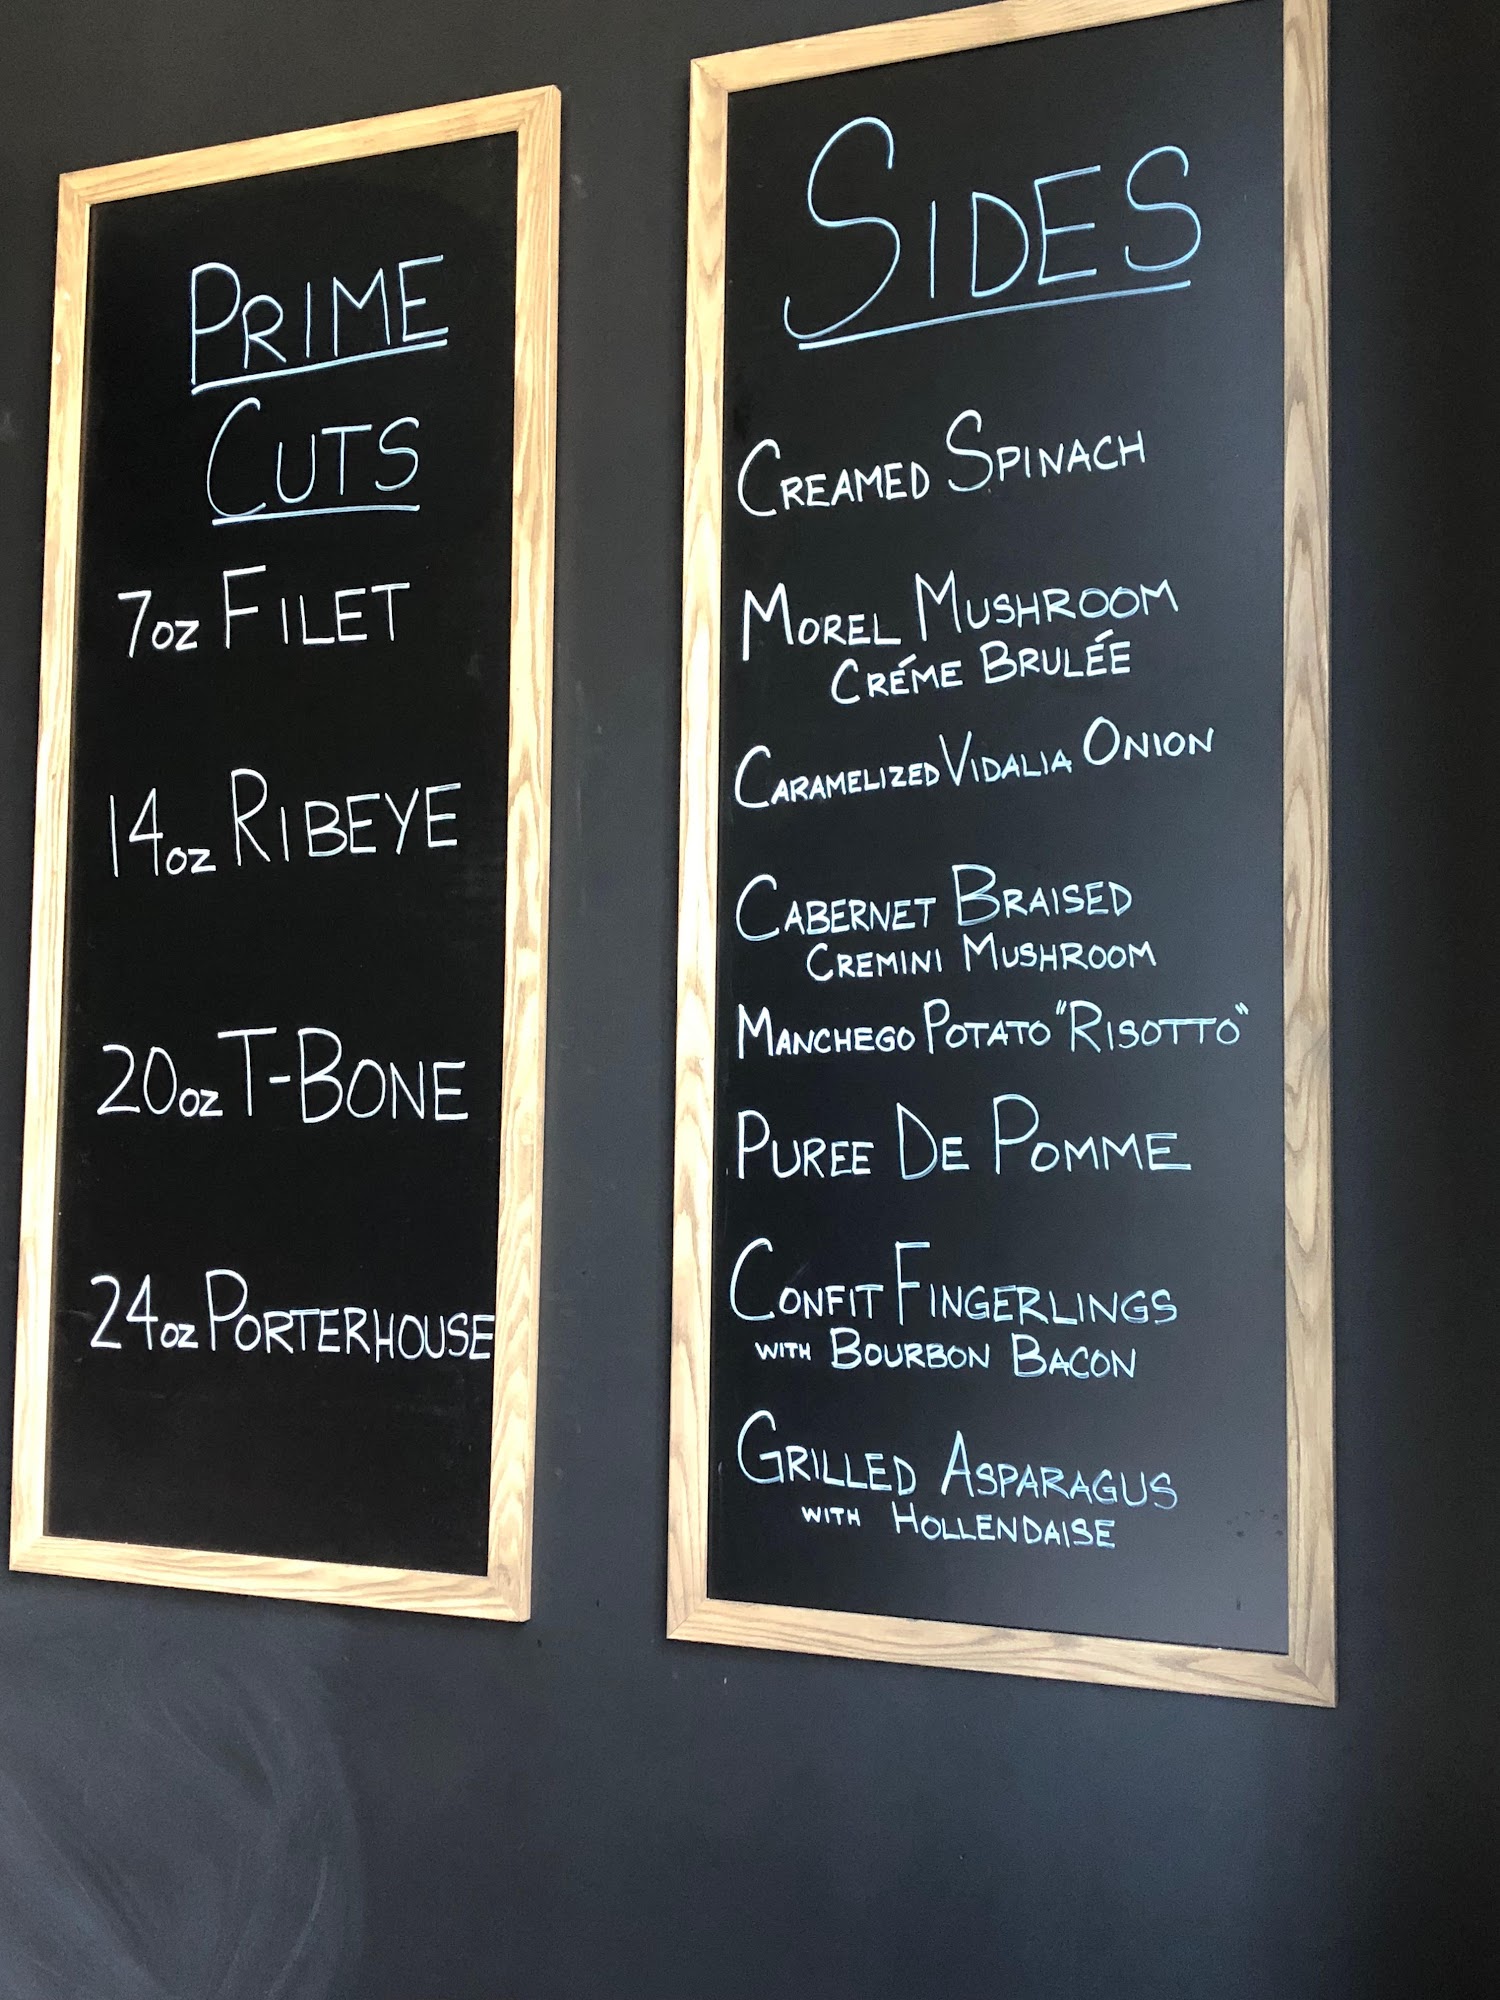 PRIME
CUTS
7oz FILET
14oz RIBEYE
20oz T-BONE
24oz PORTERHOUSE
SIDES
CREAMED SPINACH
MOREL MUSHROOM
CRÉME BRULÉE
CARAMELIZED VIDALIA ONION
CABERNET BRAISED
CREMINI MUSHROOM
MANCHEGO POTATO "RISOTTO"
PUREE DE POMME
CONFIT FINGERLINGS
WITH BOURBON BACON
GRILLED ASPARAGUS
WITH HOLLENDAISE